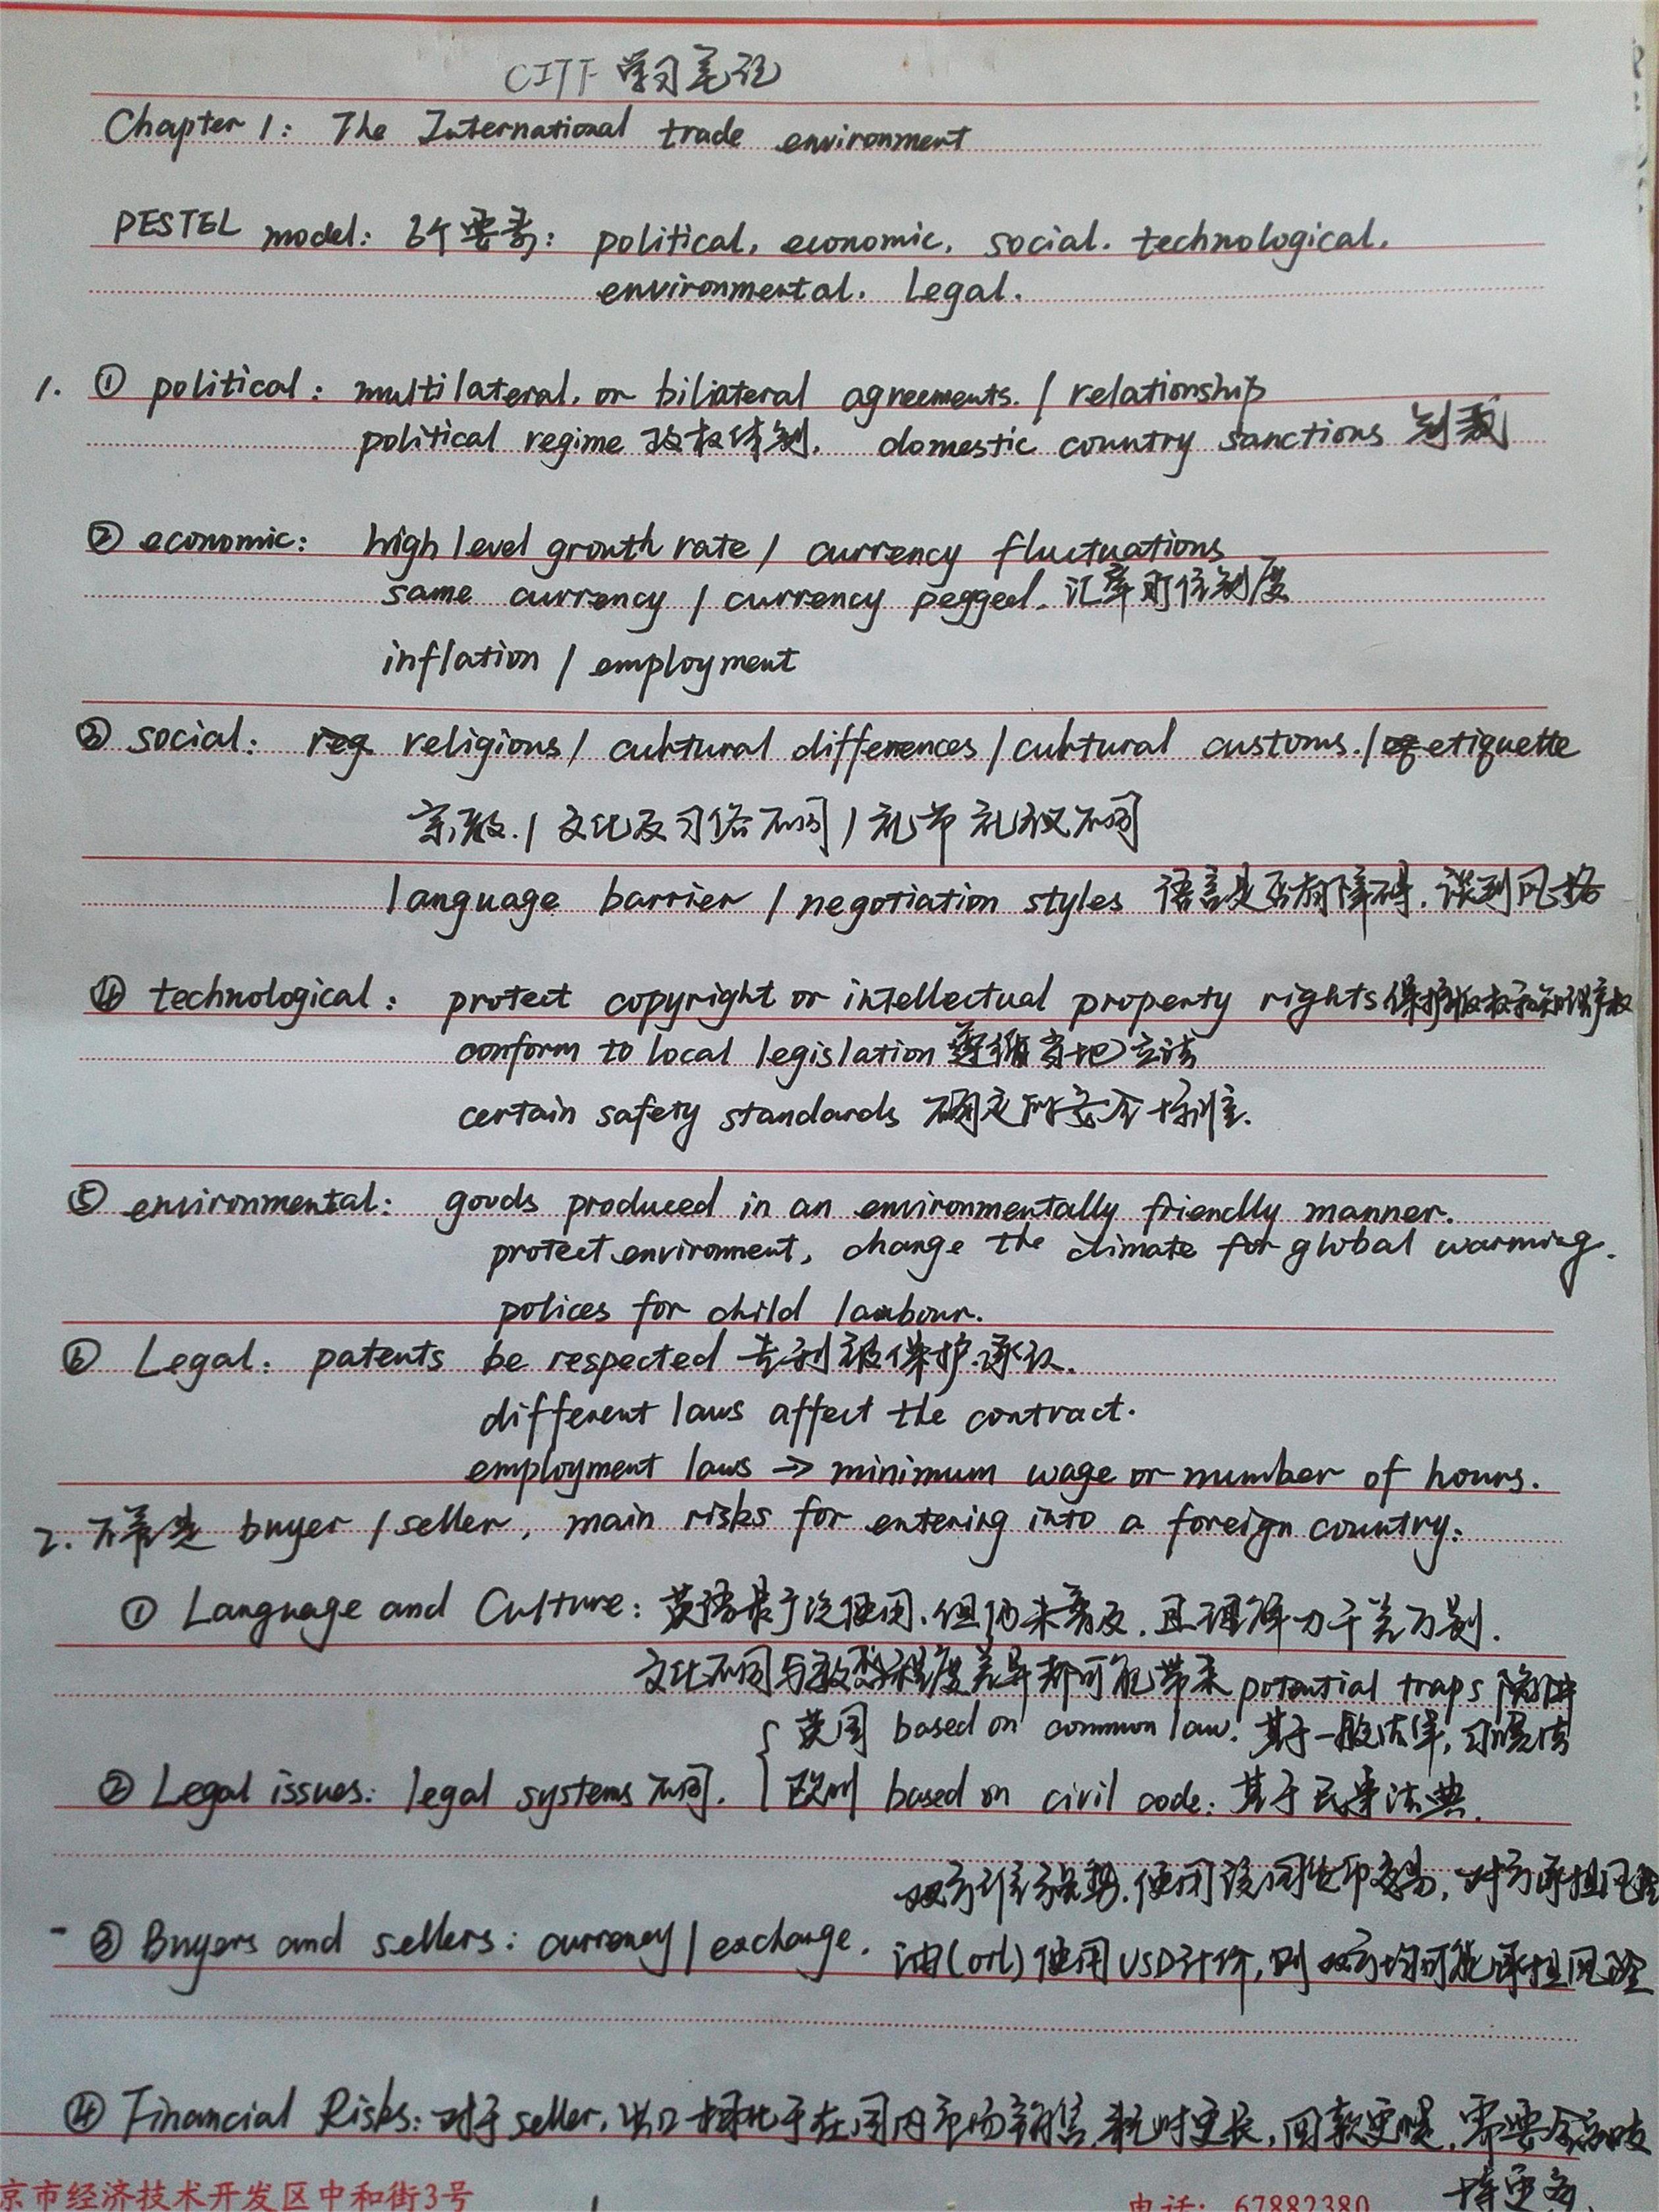 CITF 学习笔记
Chapter 1: The International trade environment
PESTEL model: 6个要素: political, economic, social. technological,
environmental. Legal.
1. ① political: multilateral, or biliateral agreements. / relationship
political regime 政权体制, domestic country sanctions 制裁
② economic: high level growth rate / currency fluctuations
same currency / currency pegged. 汇率盯住制度
inflation / employment
③ social: religions / cultural differences / cultural customs. / etiquette
宗教. / 文化及习俗不同 / 礼节礼仪不同
language barrier / negotiation styles 语言是否有障碍, 谈判风格
④ technological: protect copyright or intellectual property rights 保护版权和知识产权
conform to local legislation 遵循当地立法
certain safety standards 确定的安全标准.
⑤ environmental: goods produced in an environmentally friendly manner.
protect enviroment, change the climate for global warming.
polices for child labour.
⑥ Legal. patents be respected 专利被保护.承认.
different laws affect the contract.
employment laws → minimum wage or number of hours.
2. 不管是 buyer / seller, main risks for entering into a foreign country:
① Language and Culture: 英语最广泛使用, 但仍未普及, 且理解力千差万别.
文化不同与教育程度差异都可能带来 potential traps 陷阱
英国 based on common law. 基于一般法律, 习惯法
② Legal issues: legal systems 不同. 欧洲 based on civil code: 基于民事法典.
双方谁强势, 使用该国货币交易, 对方承担风险
- ③ Buyers and sellers: currency / exchange. 油(oil) 使用USD计价, 则双方均可能承担风险
④ Financial Risks: 对于seller, 出口相比于在国内市场销售, 耗时更长, 回款更慢, 需要资金支
持更多.
京市经济技术开发区中和街3号
电话: 67882380